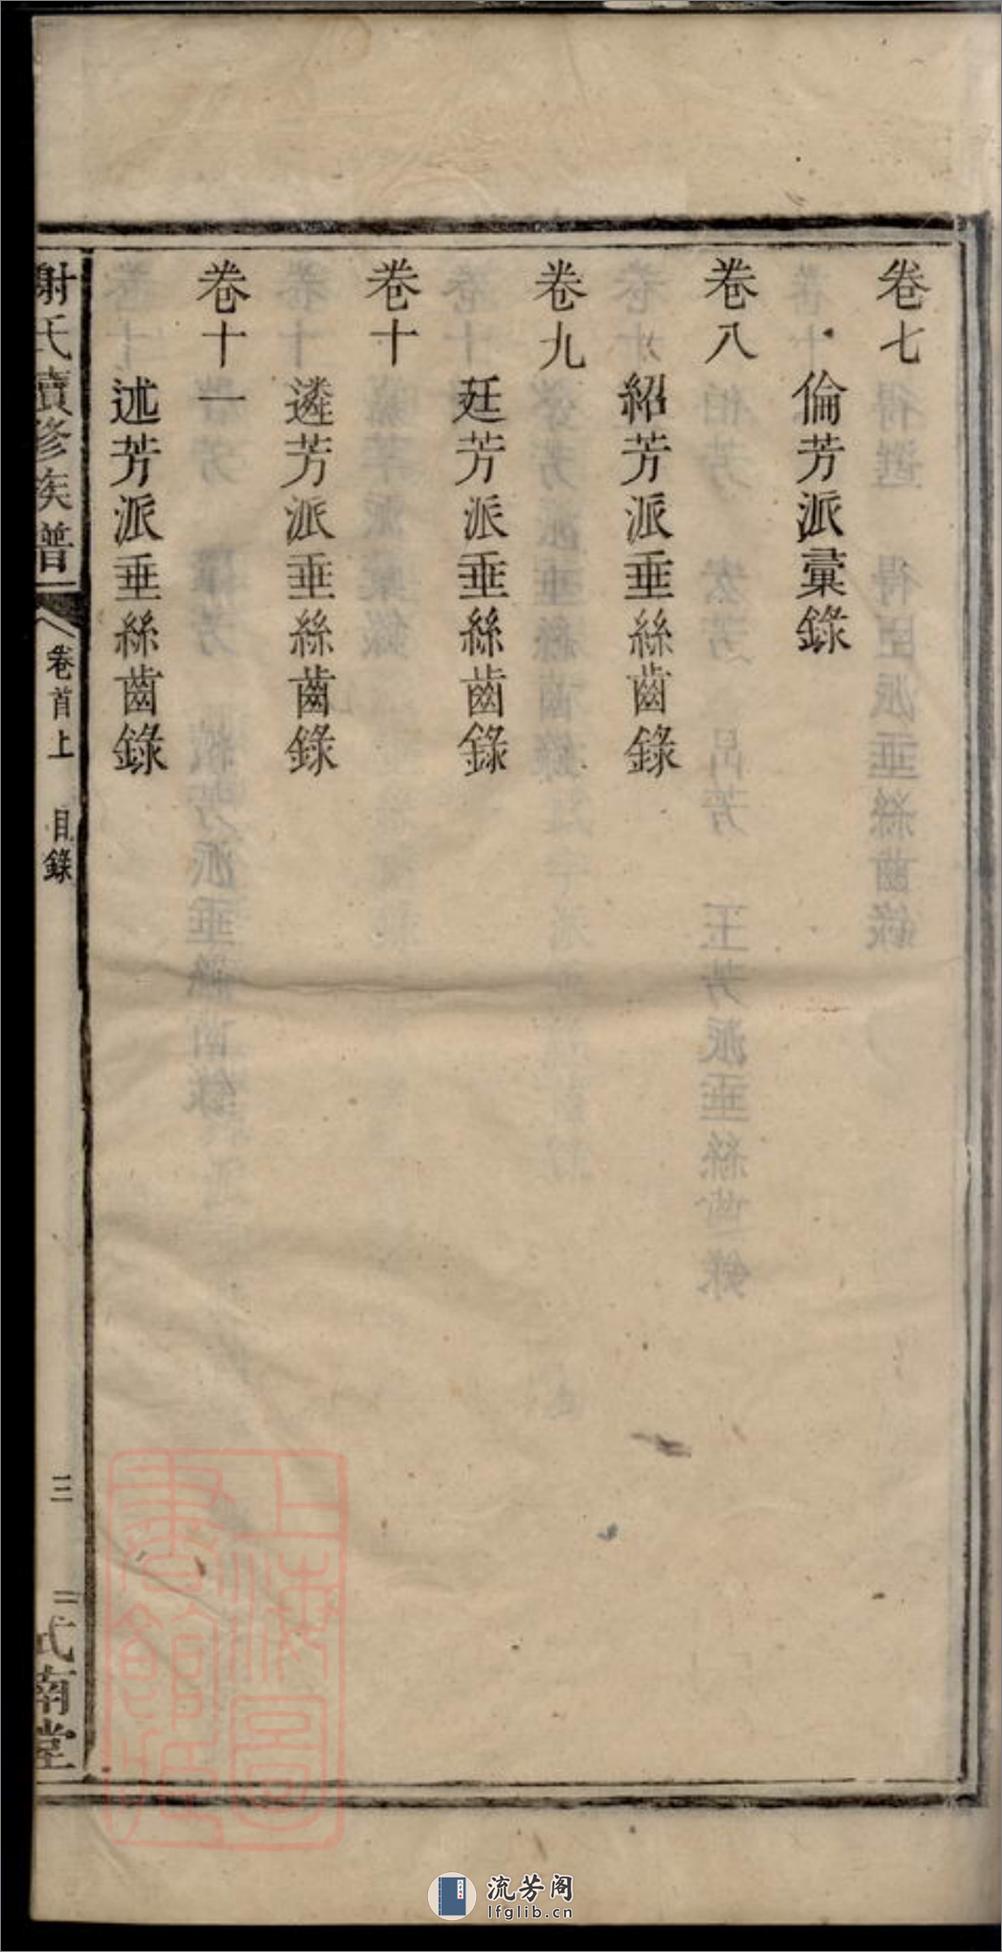 卷七
倫芳派彙錄
卷八
紹芳派垂絲齒錄
卷九
廷芳派垂絲齒錄
卷十
遴芳派垂絲齒錄
卷十一
述芳派垂絲齒錄
謝氏續修族譜
卷首上 目錄
三
式南堂
上海圖書館藏
流芳阁
lfglib.cn